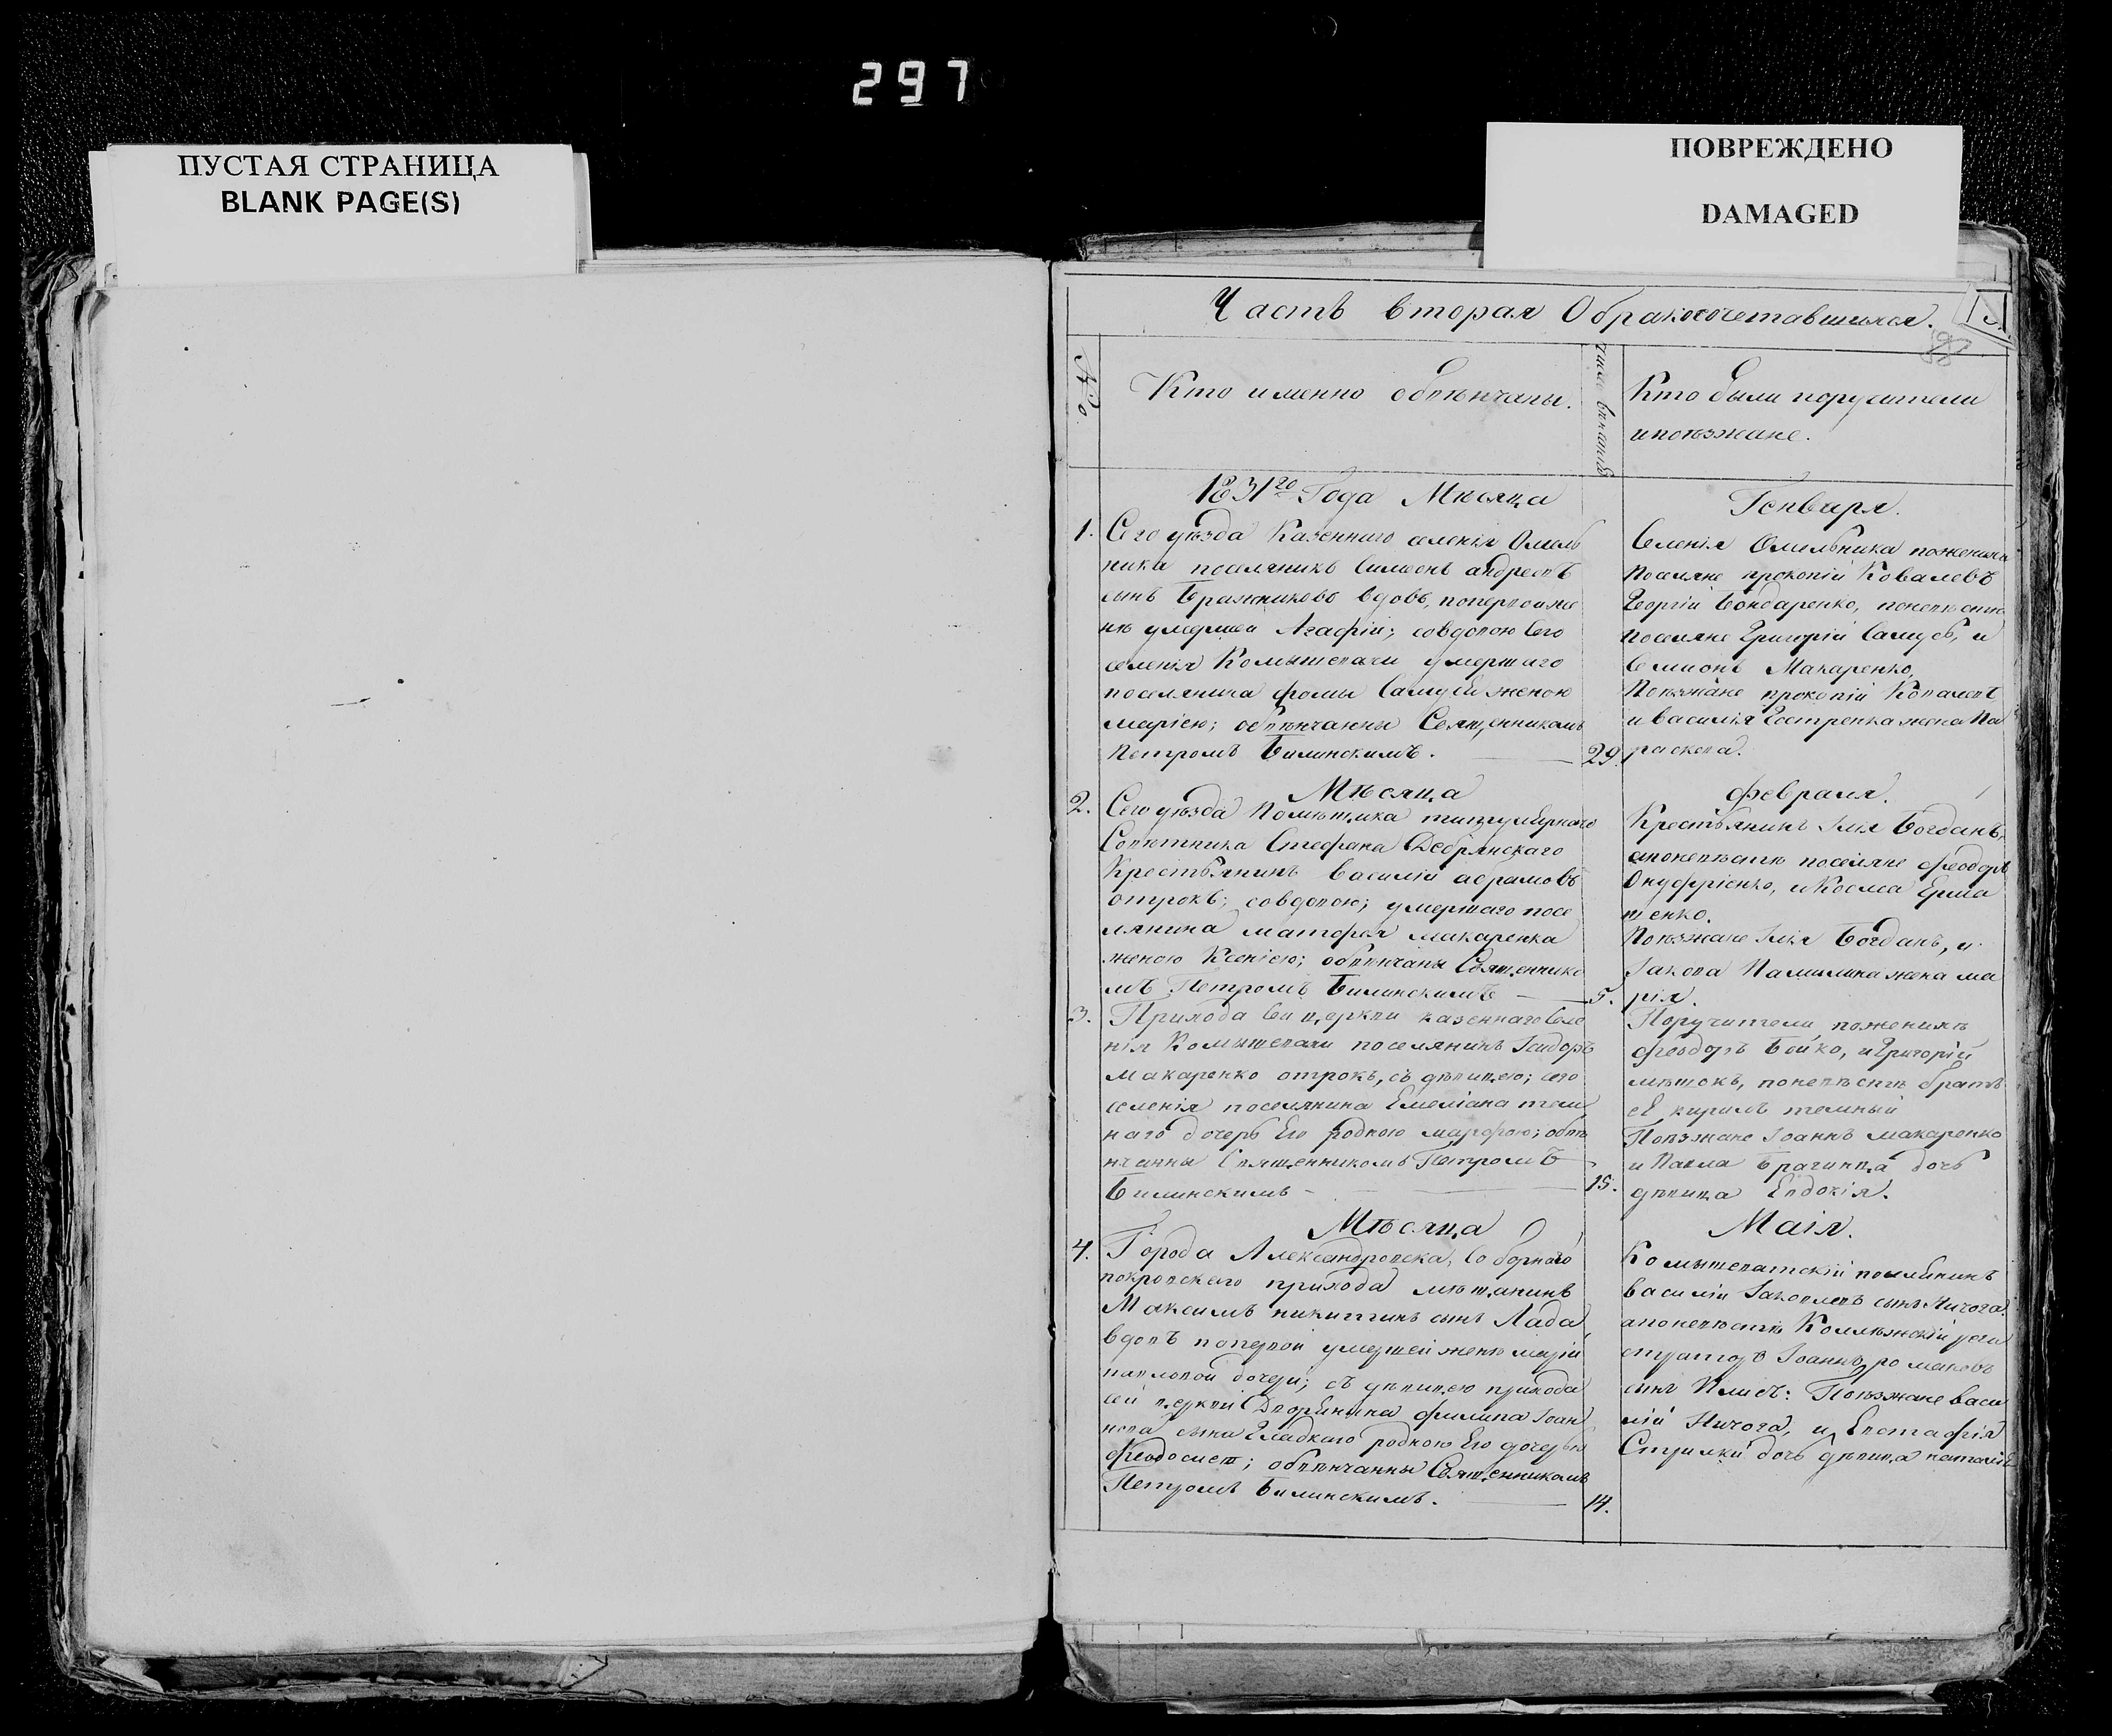 297
ПУСТАЯ СТРАНИЦА
BLANK PAGE(S)
ПОВРЕЖДЕНО
DAMAGED
Часть вторая О бракосочетавшихся.
№
Кто именно обвѣнчаны.
число вѣнчанія
Кто были поручители
и поѣзжане.
1831го Года Мѣсяца
1. Сего уѣзда Казеннаго селенія Омель
ника поселянинъ Симеонъ андреевъ
сынъ Бражниковъ вдовъ, по первой же
нѣ умершей Агафіи; со вдовою сего
селенія Комышевахи умершаго
поселянина Фомы Самуся женою
маріею; обвѣнчанны Священникомъ
Петромъ Билинскимъ.
29.
Генваря.
Селенія Омельника по женихѣ
Поселяне прокопій Ковалевъ
Георгій Бондаренко, по невѣстѣ
поселяне Григорій Самусь, и
Семионъ Макаренко,
Поѣзжане прокопій Ковалевъ
и василія жена Па
раскева.
Мѣсяца
2. Сего уѣзда Помѣщика титулярнаго
Совѣтника Стефана Дебрянскаго
Крестьянинъ василій абрамовъ
отрокъ; со вдовою; умершаго посе
лянина матфея макаренка
женою Ксеніею; обвѣнчаны Священнико
мъ Петромъ Билинскимъ
5.
Февраля.
Крестьянинъ Илія Богданъ,
а по невѣстѣ поселяне Феодоръ
Онуфріенко, и Косма Ерма
шенко.
Поѣзжане Илія Богданъ, и
Іакова жена ма
рія.
3. Прихода сей церкви казеннаго Селе
нія Комышевахи поселянинъ Исидоръ
Макаренко отрокъ, съ дѣвицею; сего
селенія поселянина Емеліана тем
наго дочерь Его родною марфою; обвѣ
нчанны Священникомъ Петромъ
Билинскимъ
15.
Поручители по женихѣ
Феодоръ Бойко, и Григорій
мѣшокъ, по невѣстѣ братъ
еѣ кирилъ темный
Поѣзжане Іоаннъ макаренко
и Павла Брагинца дочь
дѣвица Евдокія.
Мѣсяца
4. Города Александровска, Соборнаго
покровскаго прихода мѣщанинъ
Максимъ никитинъ сынъ Лада,
вдовъ по первой умершей женѣ маріи
павловой дочери; съ дѣвицею прихода
сей церкви Дворенина филипа Іоан
нова сына Гладкаго родною Его дочерью
Феодосиею; обвѣнчанны Священникомъ
Петромъ Билинскимъ.
14.
Маія.
Комышеватскій поселенинъ
василій Іаковлевъ сынъ Ничога.
а по невѣстѣ Коллѣжскій реги
страторъ Іоаннъ романовъ
сынъ Поѣзжане васи
лій Ничога, и Евстафія
дочь дѣвица наталія